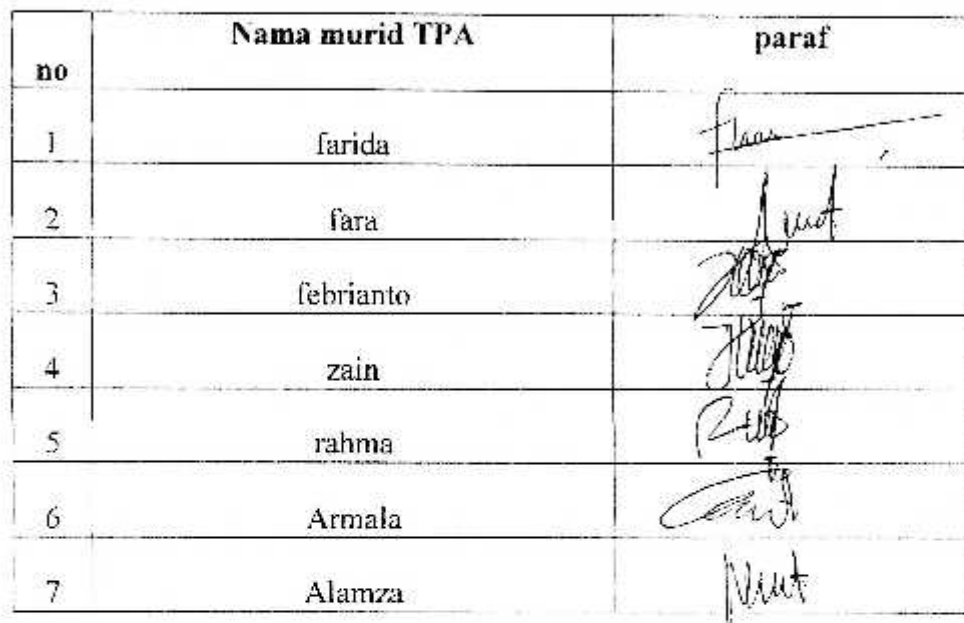 no Nama murid TPA paraf
1 farida
2 fara
3 febrianto
4 zain
5 rahma
6 Armala
7 Alamza